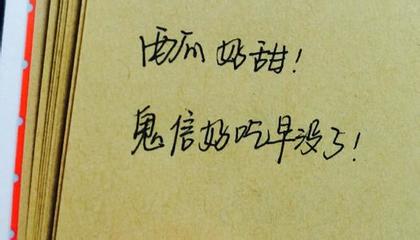 西瓜好甜！
鬼信好吃早没了！